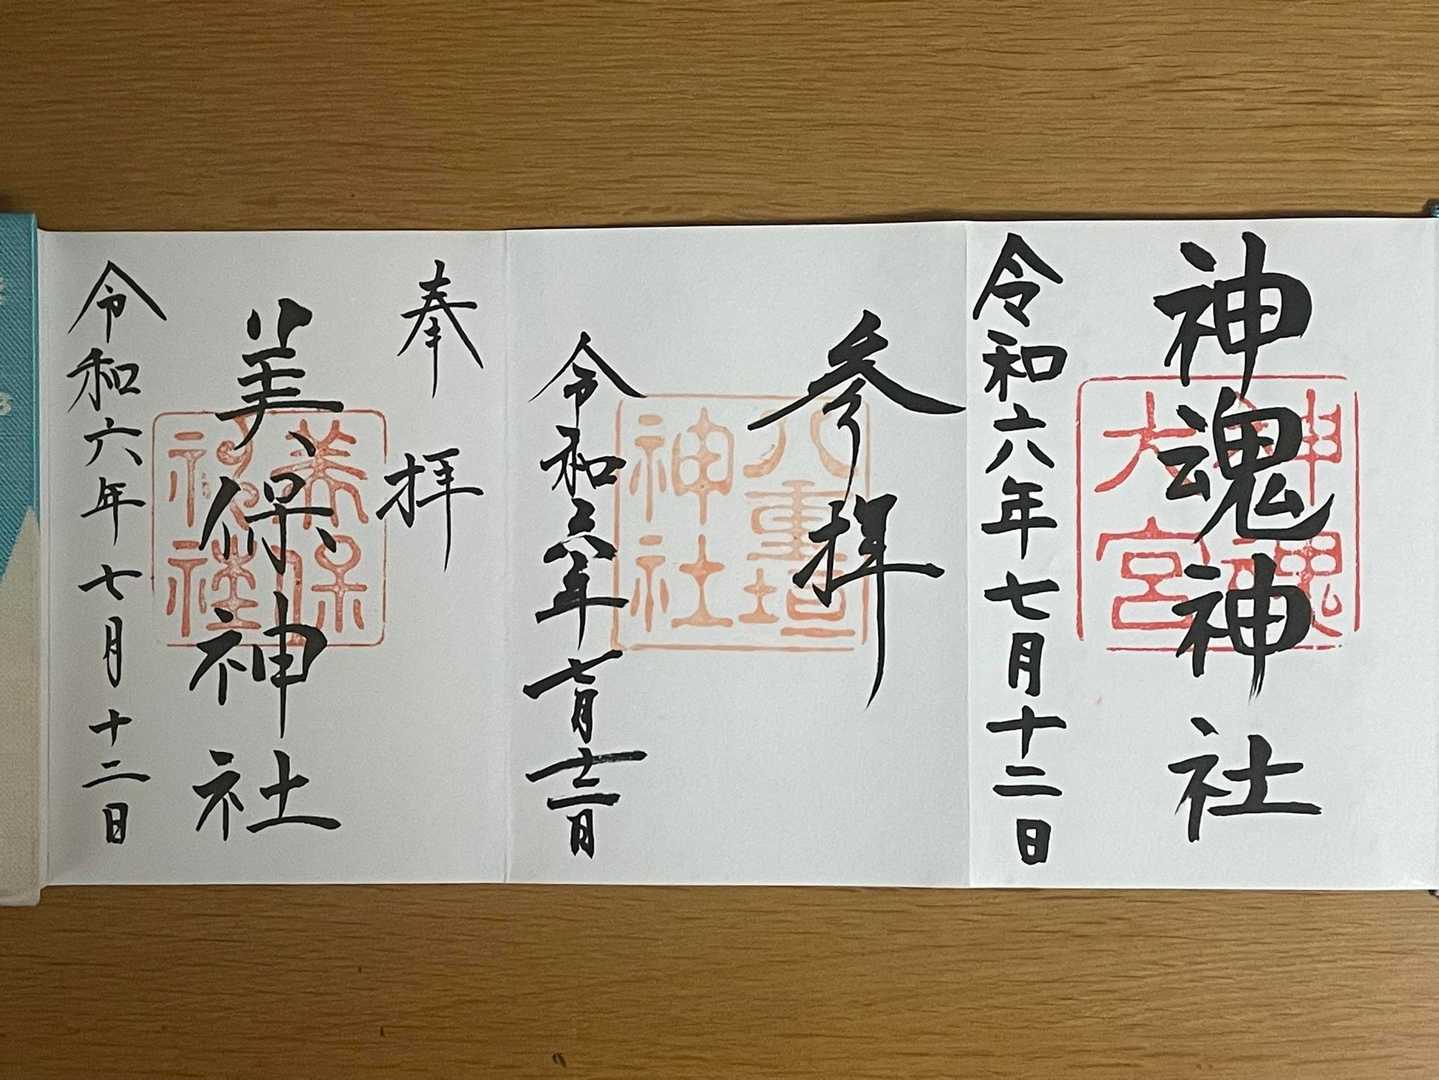 神魂神社
神魂
大宮
令和六年七月十二日
参拝
八重垣
神社
令和六年七月十二日
奉拝
美保神社
美保
神社
令和六年七月十二日